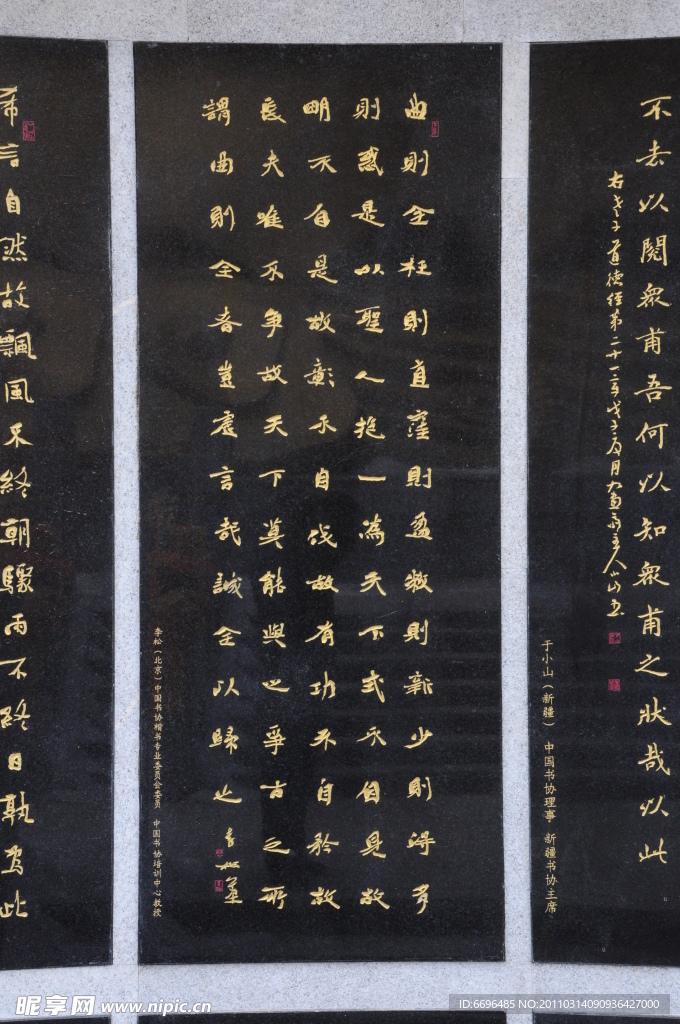 不去以閱衆甫吾何以知衆甫之狀哉以此
右老子道德經第二十一章
于小山（新疆） 中国书协理事 新疆书协主席
曲則全枉則直窪則盈敝則新少則得多
則惑是以聖人抱一為天下式不自見故
明不自是故彰不自伐故有功不自矜故
長夫唯不爭故天下莫能與之爭古之所
謂曲則全者豈虛言哉誠全以歸之
李松（北京）中国书协楷书专业委员会委员 中国书协培训中心教授
希言自然故飄風不終朝驟雨不終日孰為此
昵享网 www.nipic.cn
ID:6696485 NO:20110314090936427000